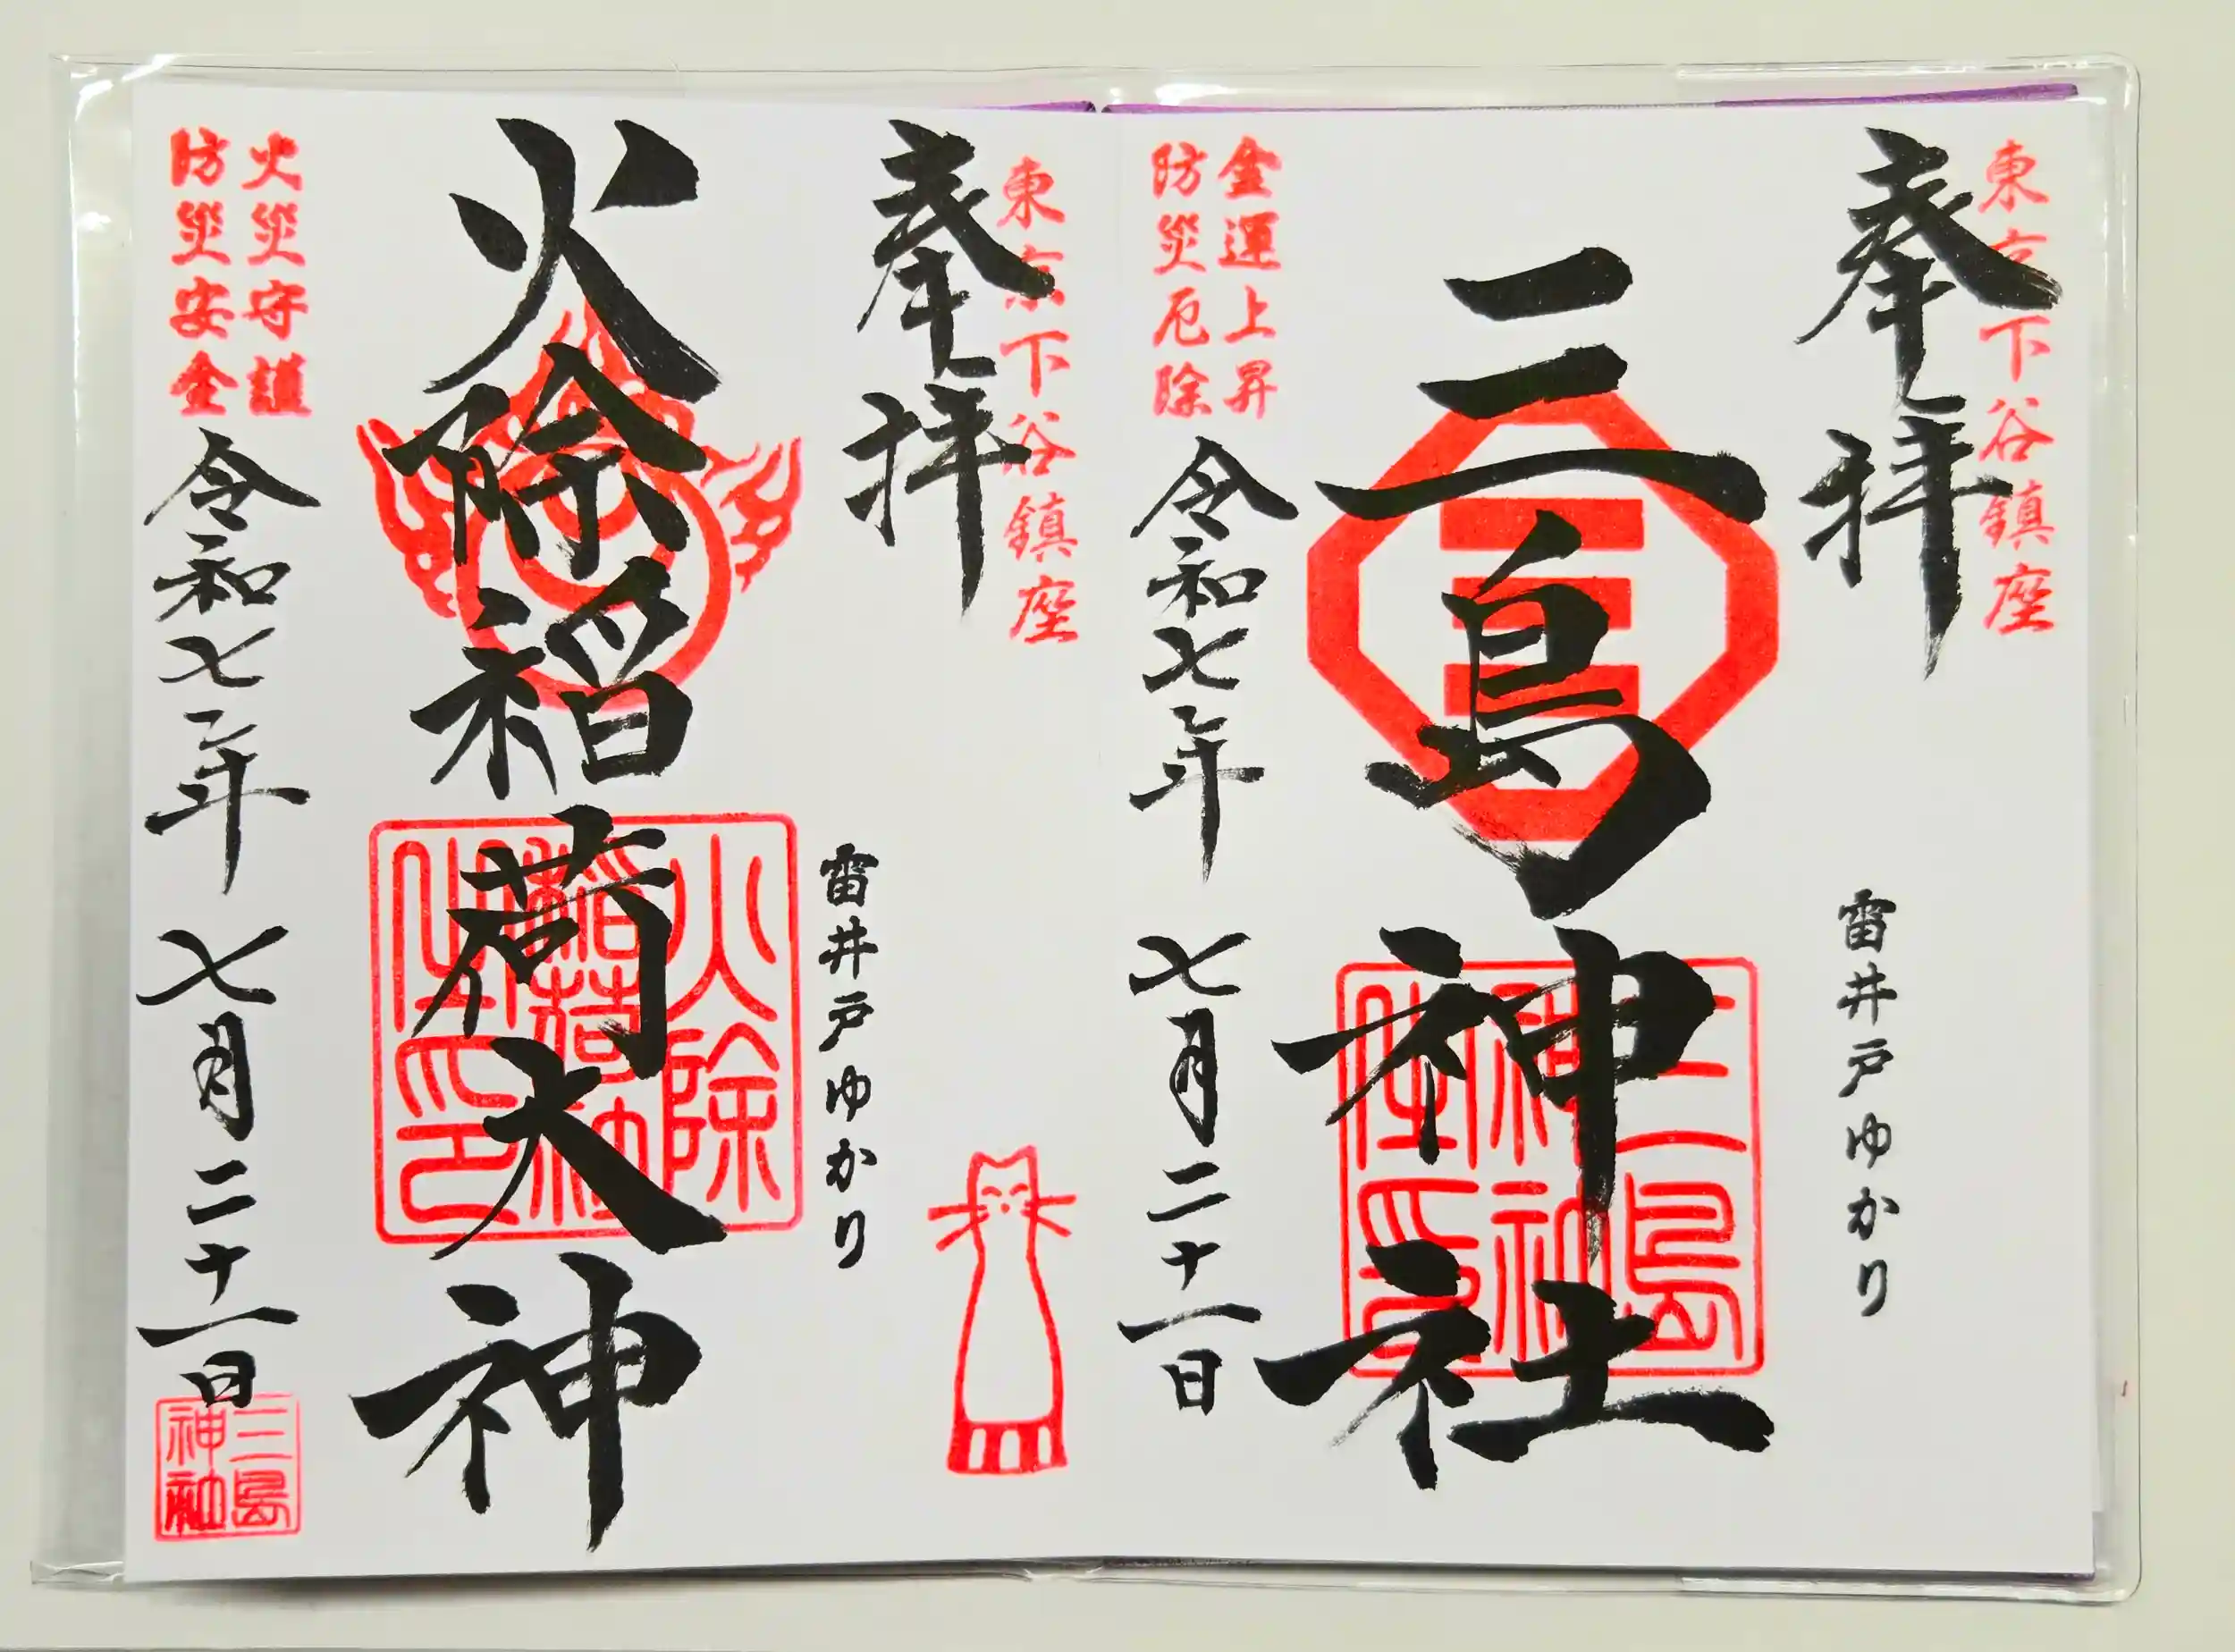 東京下谷鎮座
奉拝
雷井戸ゆかり
三島神社
三島神社之印
金運上昇
防災厄除
令和七年 七月二十一日
東京下谷鎮座
奉拝
雷井戸ゆかり
火除稲荷大神
火除稲荷神社之印
火災守護
防災安全
令和七年 七月二十一日
三島神社